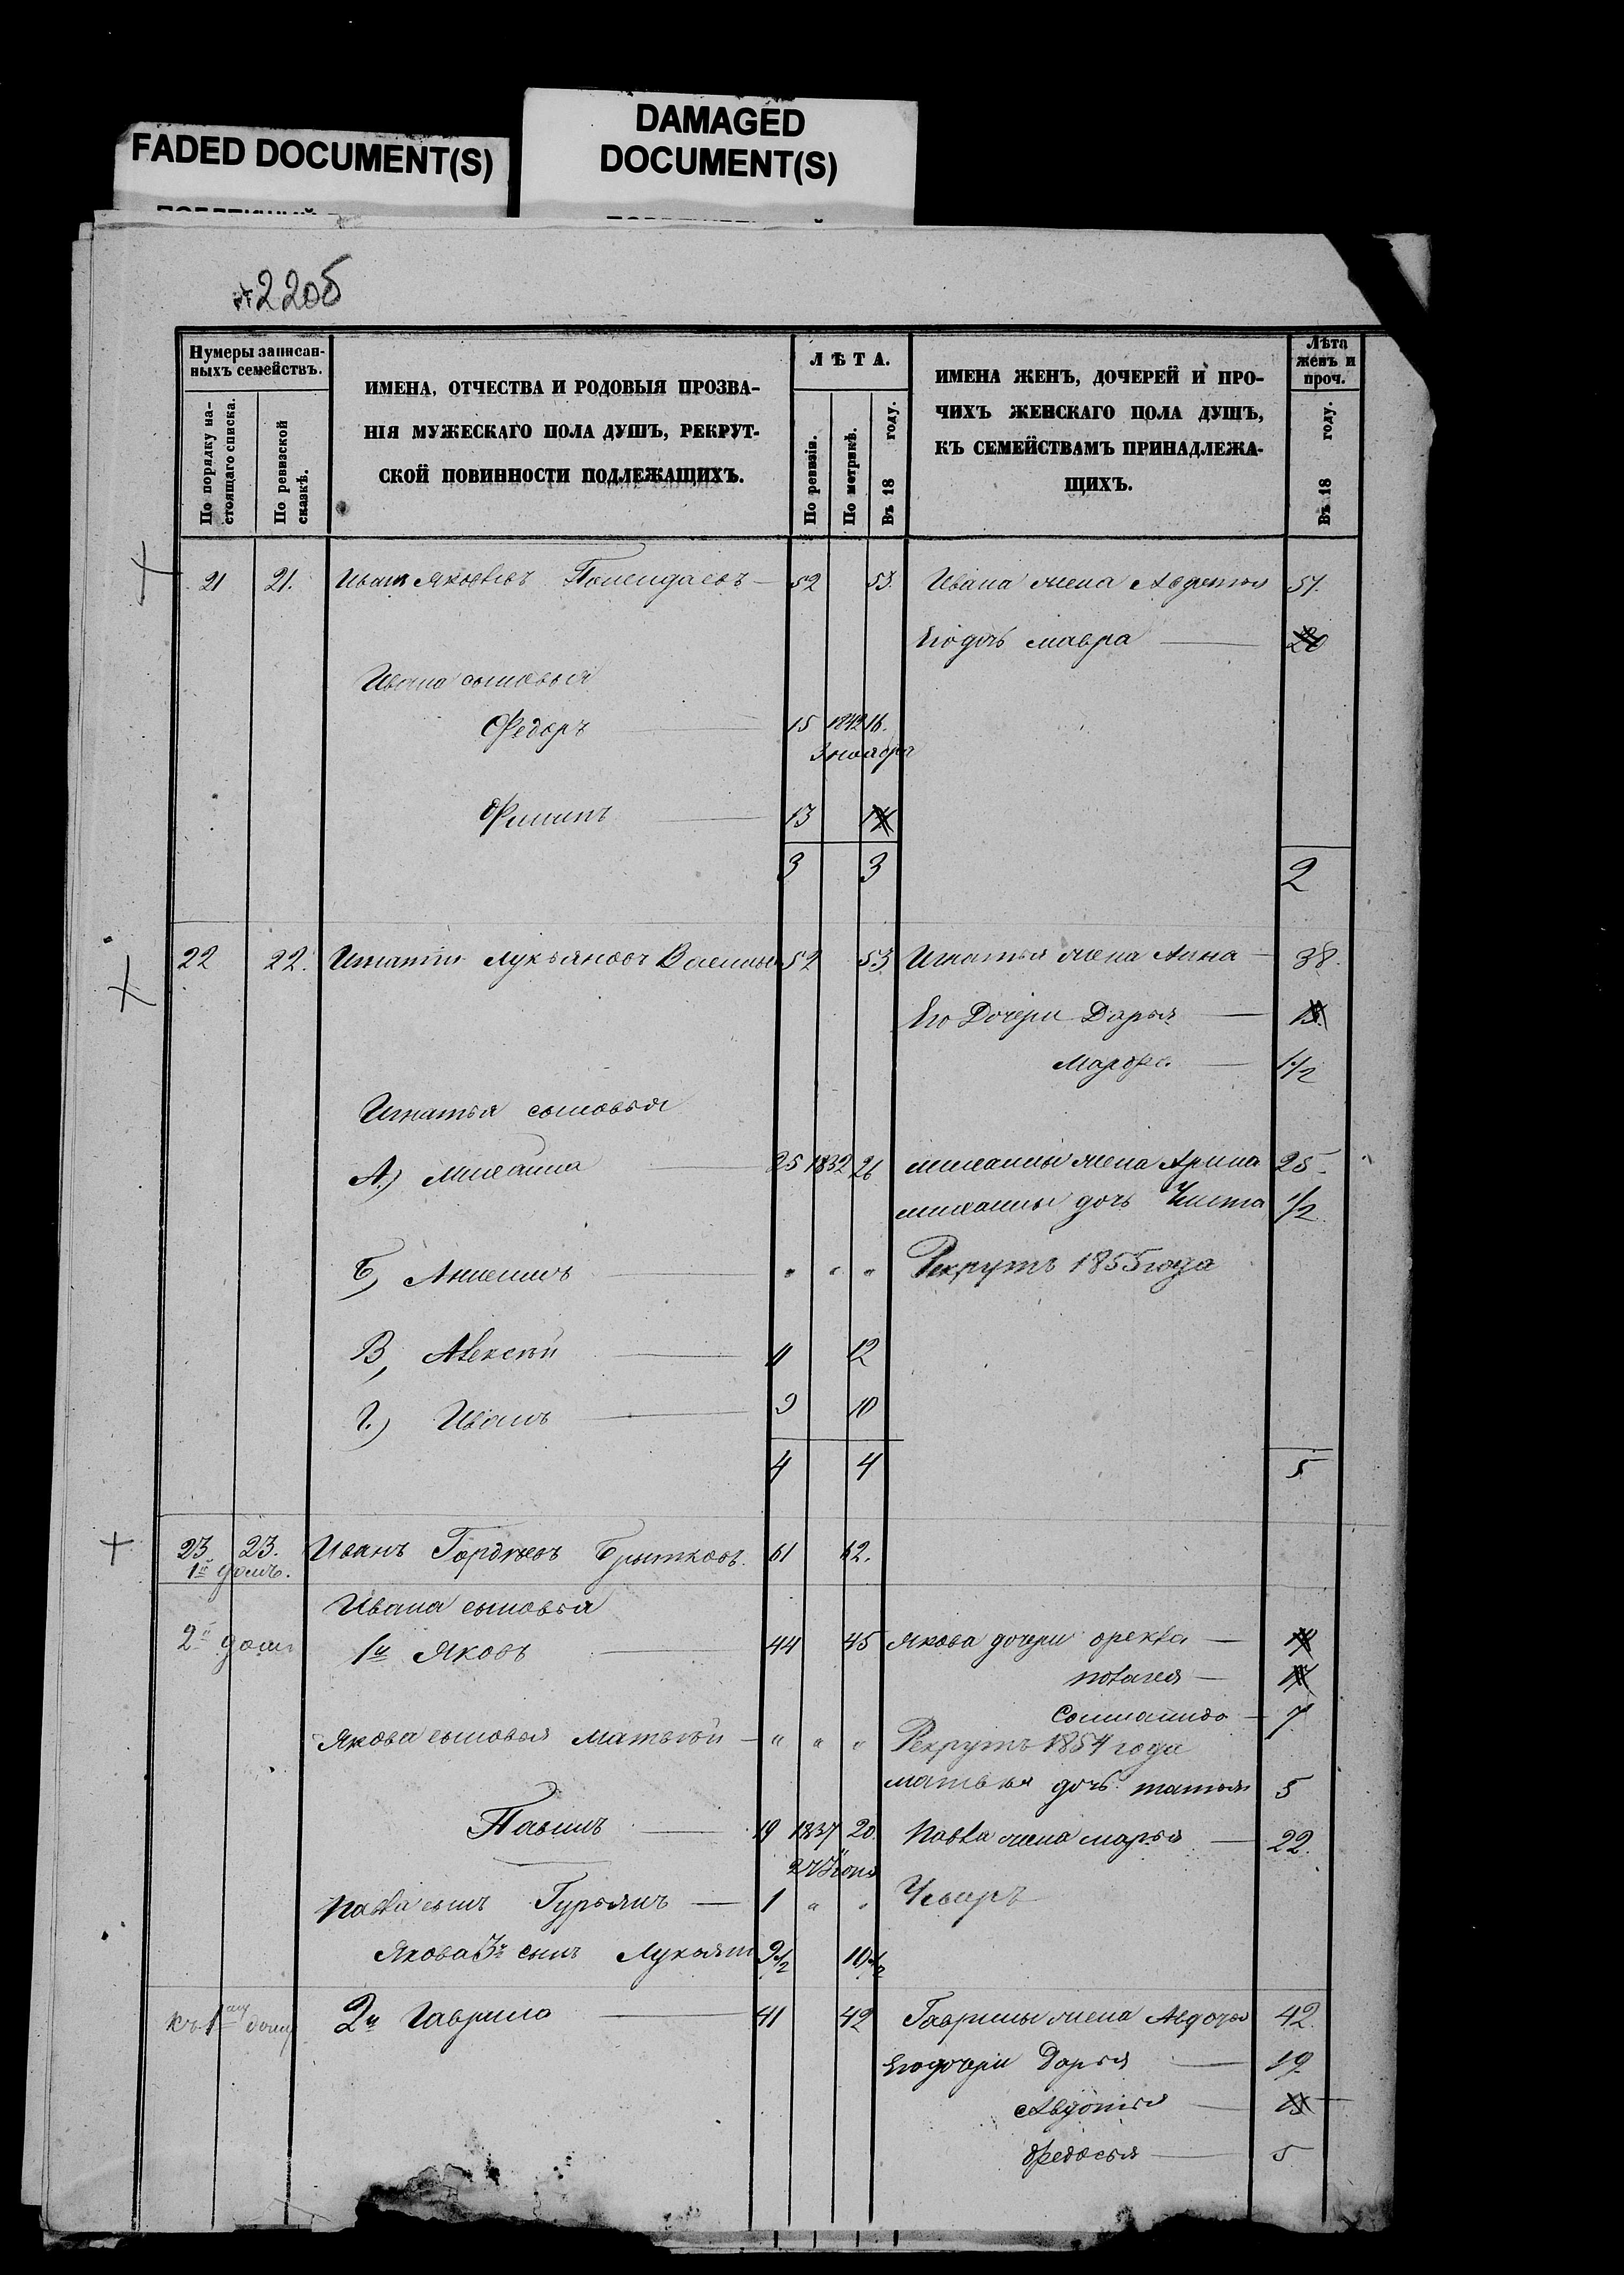 FADED DOCUMENT(S)
DAMAGED
DOCUMENT(S)
220б
Нумеры записан-
ныхъ семействъ.
По порядку на-
стоящаго списка.
По ревизской
сказкѣ.
ИМЕНА, ОТЧЕСТВА И РОДОВЫЯ ПРОЗВА-
НІЯ МУЖЕСКАГО ПОЛА ДУШЪ, РЕКРУТ-
СКОЙ ПОВИННОСТИ ПОДЛЕЖАЩИХЪ.
ЛѢТА.
По ревизіи.
По метрикѣ.
Въ 18 году.
ИМЕНА ЖЕНЪ, ДОЧЕРЕЙ И ПРО-
ЧИХЪ ЖЕНСКАГО ПОЛА ДУШЪ,
КЪ СЕМЕЙСТВАМЪ ПРИНАДЛЕЖА-
ЩИХЪ.
Лѣта
женъ и
проч.
Въ 18 году.
21 21. Иванъ Яковлевъ 52 53. Ивана жена Авдотья 51.
Его дочь мавра 20
Ивана сыновья
Федоръ 15 1842 16.
3 ноября
Филипъ 13
3 3 2
22 22. Игнатій Лукьяновъ 52 53 Игнатья жена Анна 38.
Его Дочери Дарья
Марфа 1 1/2
Игнатья сыновья
А.) Михаила 25 1832 26 михаилы жена Арина 25.
михаилы дочь 1/2
Б, " " " Рекрутъ 1855 года
В, Алексѣй 11 12
Г.) Иванъ 9 10
4 4 5
23 23. Иванъ Гордѣевъ Брытковъ. 61 62.
1й домъ.
Ивана сыновья
2й домъ 1й Яковъ 44 45 Якова дочери фекла
пелагея
7
Якова сыновья Матвѣй " " " Рекрутъ 1854 года
матвѣя дочь татьян 5
Павилъ 19 1837 20. Павла жена марья 22.
Іюня
Павла сынъ Гурьянъ 1 " " Умеръ
Якова 3й сынъ Лукьян 9 1/2 10 1/2
къ 1му дому 2й Гаврило 41 42 Гаврилы жена Авдотья 42.
Его дочери Дарья 19
Авдотья
Федосья 5